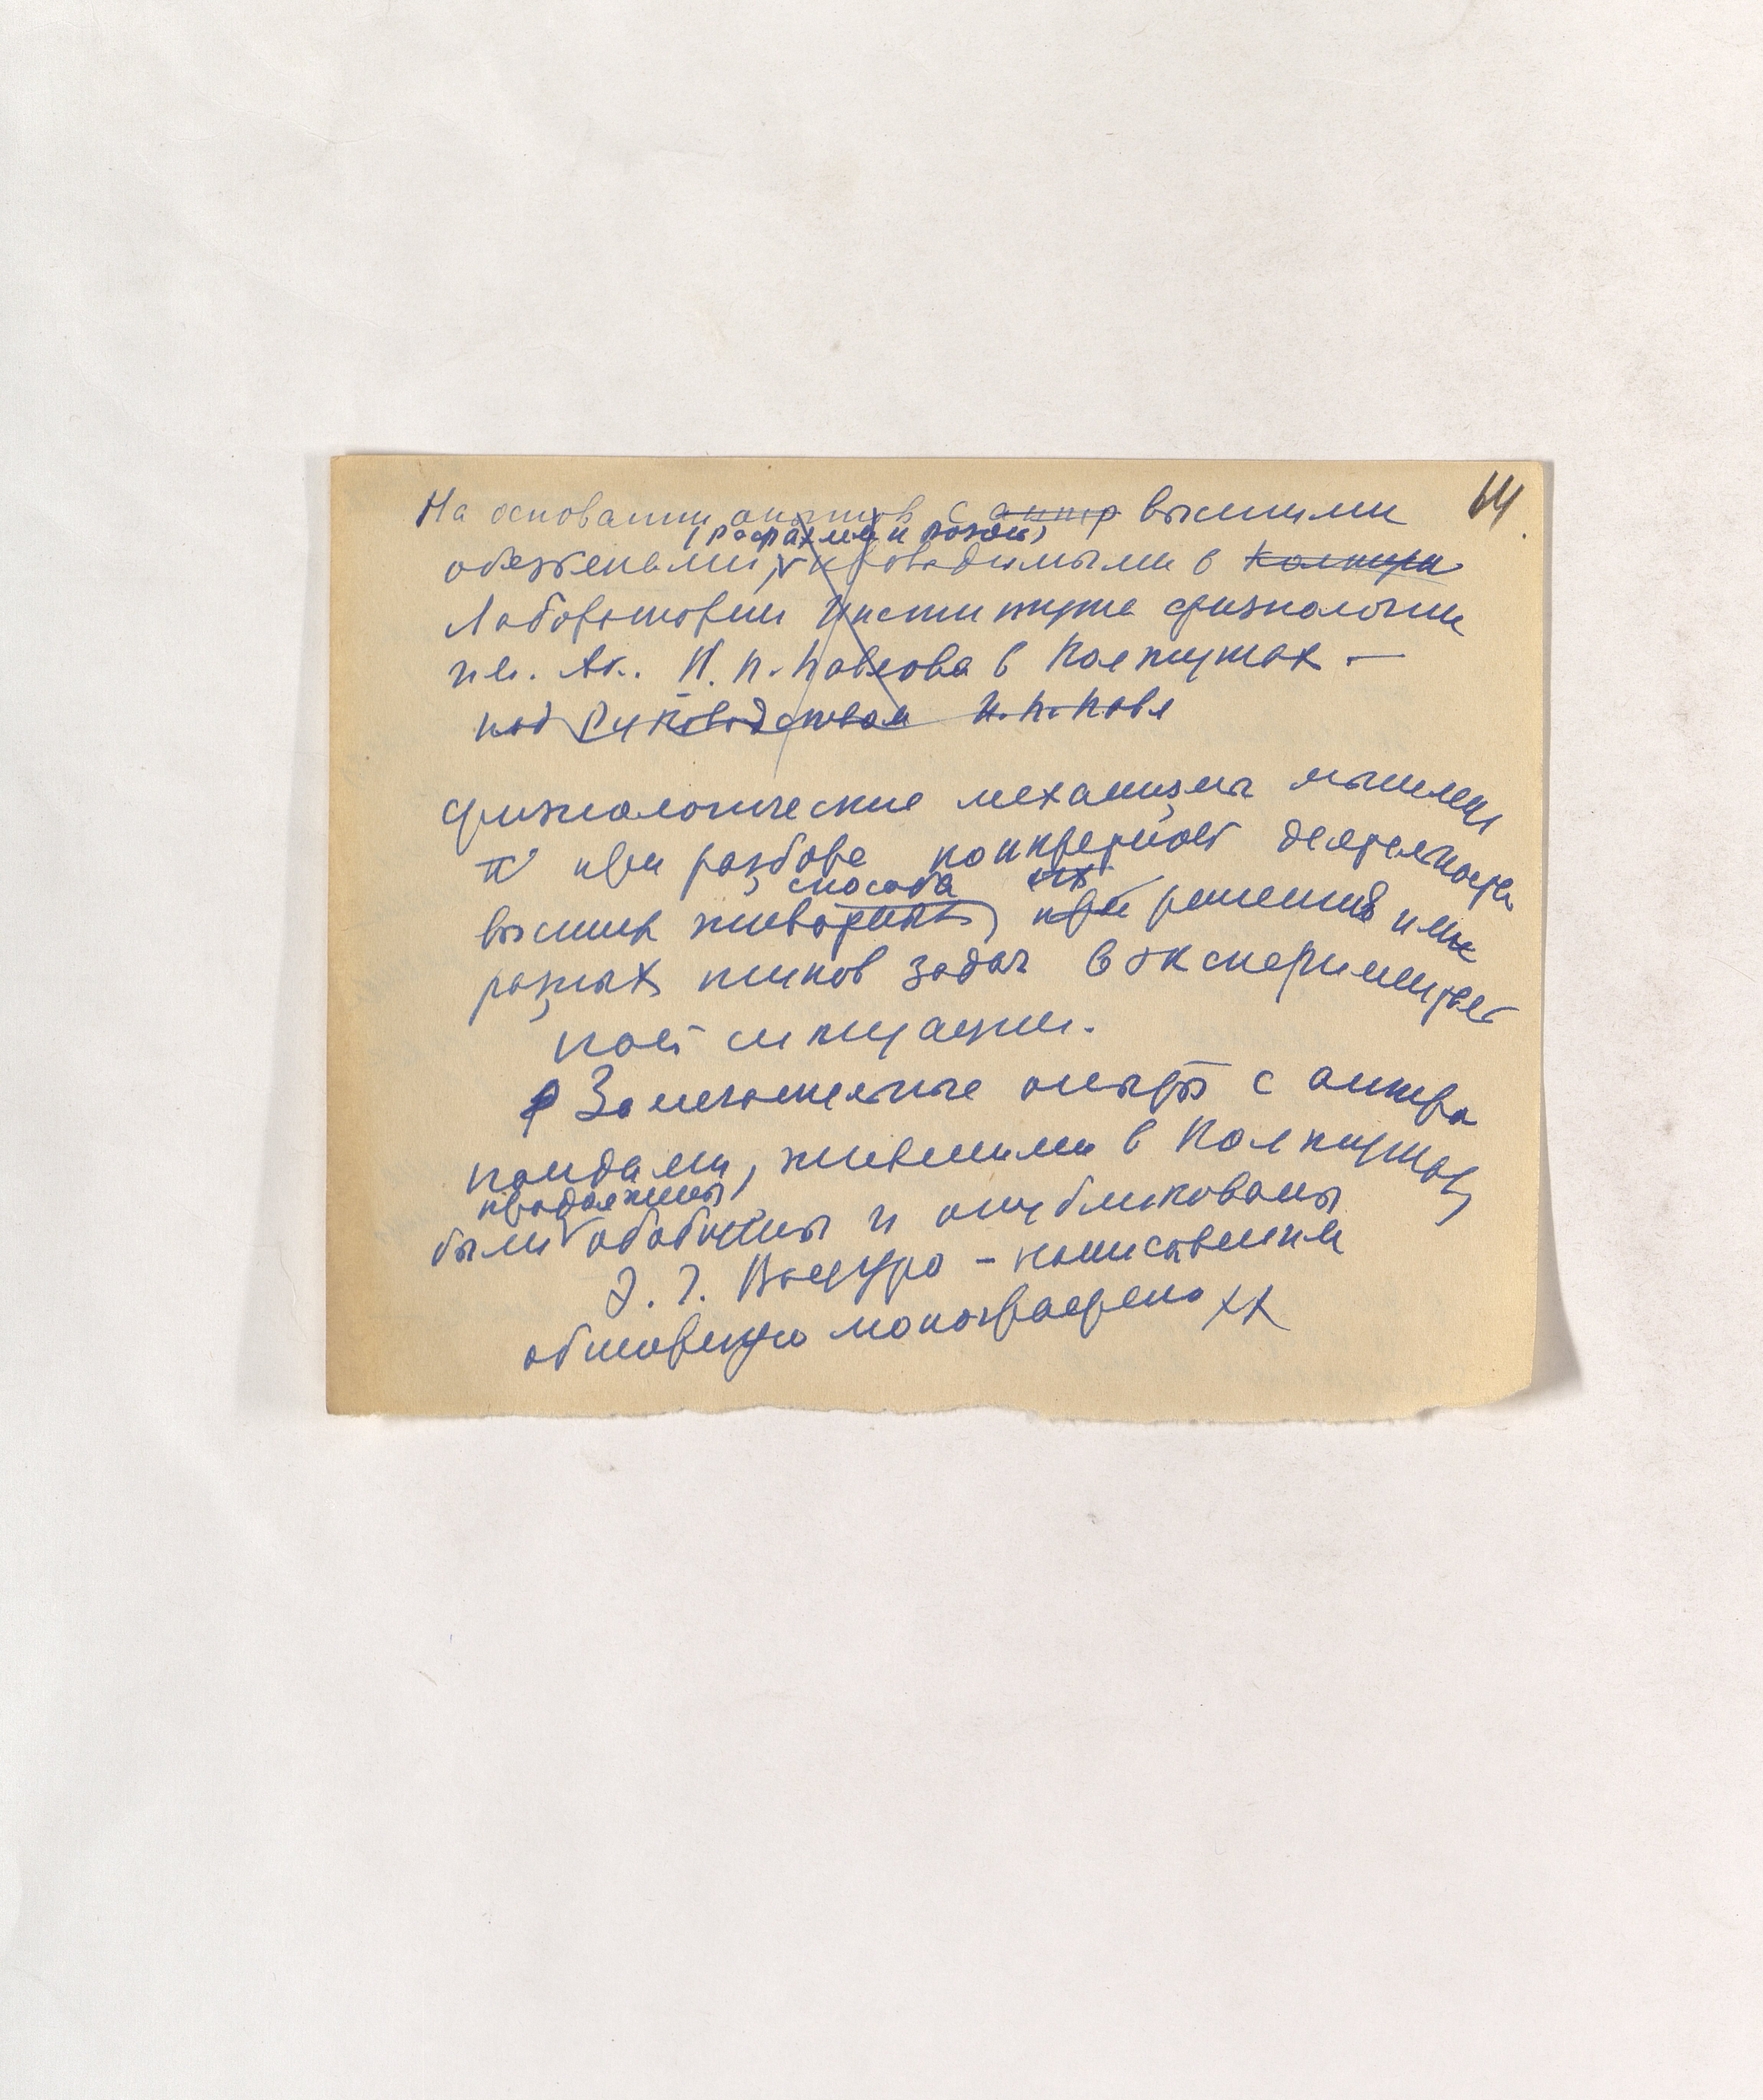 14
На основании опытов с антр высшими
(Рафаэлем и Розой)
обезьянами, проводимыми в Колтуш
Лаборатории Института физиологии
им. Ак. И. П. Павлова в Колтушах —
под руководством И. П. Павл
физиологические механизмы мышлен
при разборе конкретной деятельности
способа их
высших животных, при решения ими
разных типов задач в эксперименталь
ной ситуации.
Замечательные опыты с антро
поидами, жившими в Колтушах,
продолжены
были обобщены и опубликованы
Э. Г. Вацуро – написавшим
обширную монографию хх